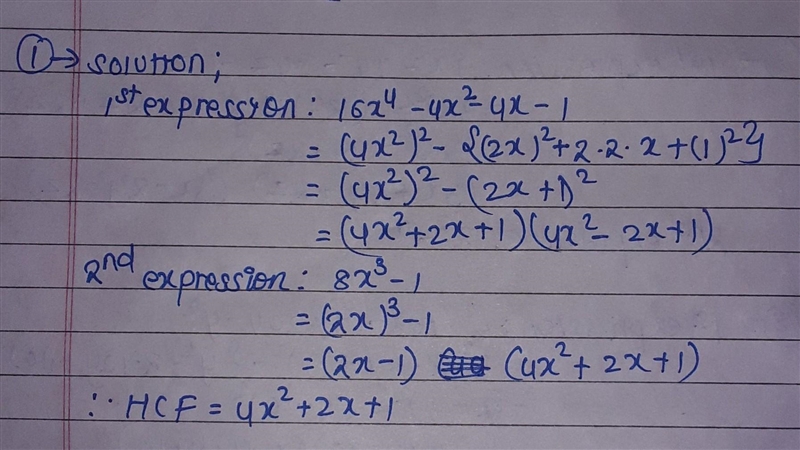 ① → solution;
1st expression: 16x⁴ - 4x² - 4x - 1
= (4x²)² - {(2x)² + 2·2·x + (1)²}
= (4x²)² - (2x+1)²
= (4x²+2x+1)(4x²- 2x+1)
2nd expression: 8x³ - 1
= (2x)³ - 1
= (2x-1) (4x² + 2x + 1)
∴ HCF = 4x² + 2x + 1